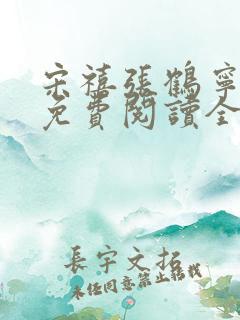 宋禧張鶴寧
免費閱讀全
長宇文拓
未经同意禁止转载